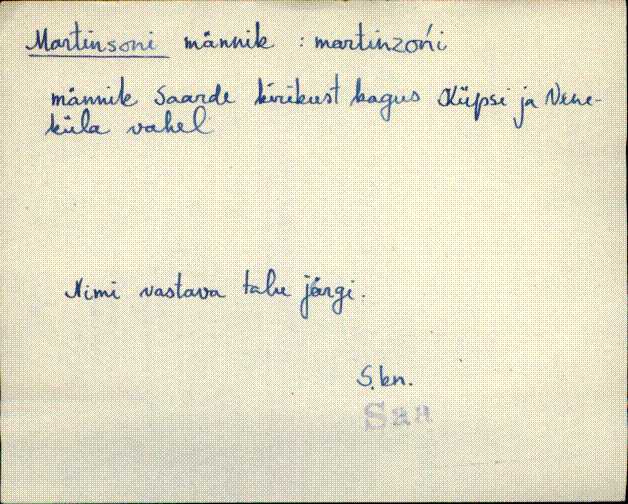 Martinsoni männik : martinzońi
männik Saarde kirikust kagus Küpsi ja Vene-
küla vahel
Nimi vastava talu järgi.
S.kn.
Saa